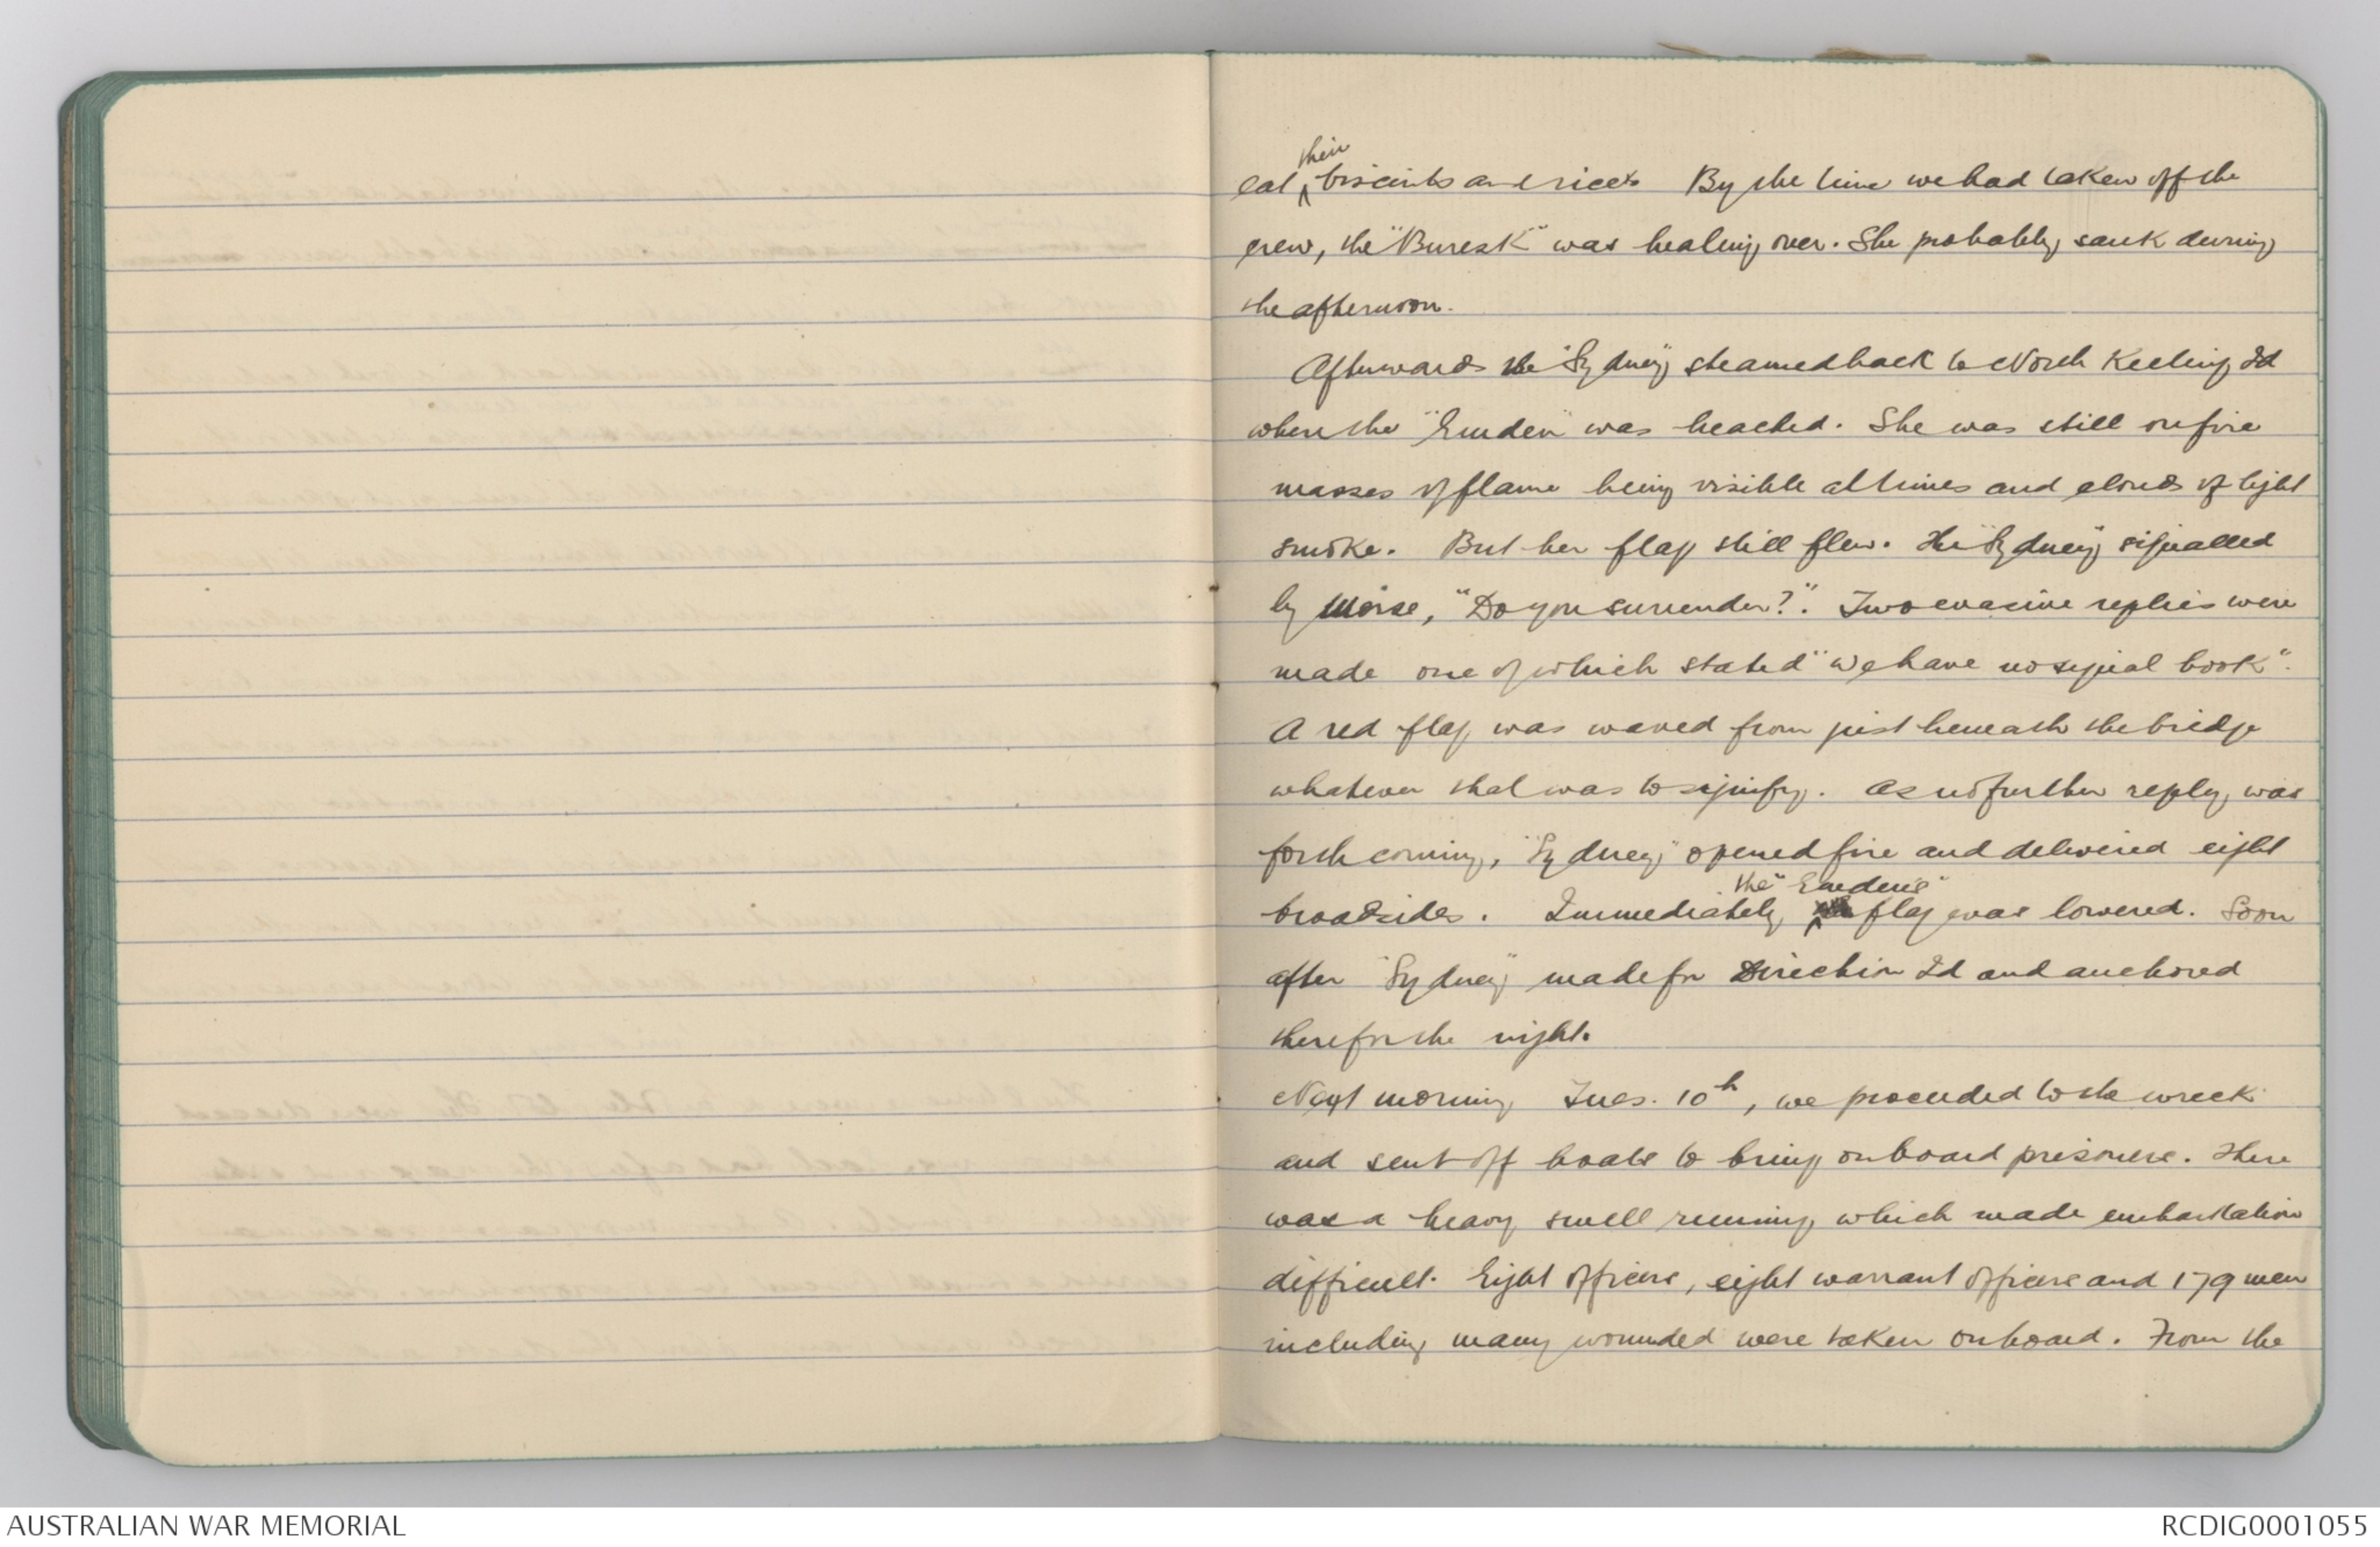 their
eat ^ biscuits and rice. By the time we had taken off the
crew, the "Buresk" was healing over. She probably sank during
the afternoon.
Afterwards the "Sydney" steamed back to North Keeling Id
where the "Emden" was beached. She was still on fire
masses of flame being visible at times and clouds of light
smoke. But her flag still flew. The "Sydney" signalled
by Morse, "Do you surrender?". Two evasive replies were
made one of which stated "We have no signal book".
A red flag was waved from just beneath the bridge
whatever that was to signify. As no further reply was
forth coming, "Sydney" opened fire and delivered eight
the "Emden's"
broadsides. Immediately ^ flag was lowered. Soon
after "Sydney" made for Direction Id and anchored
there for the night.
Next morning Tues. 10th, we proceeded to the wreck
and sent off boats to bring onboard prisoners. There
was a heavy swell running which made embarkation
difficult. Eight officers, eight warrant officers and 179 men
including many wounded were taken onboard. From the
AUSTRALIAN WAR MEMORIAL
RCDIG0001055